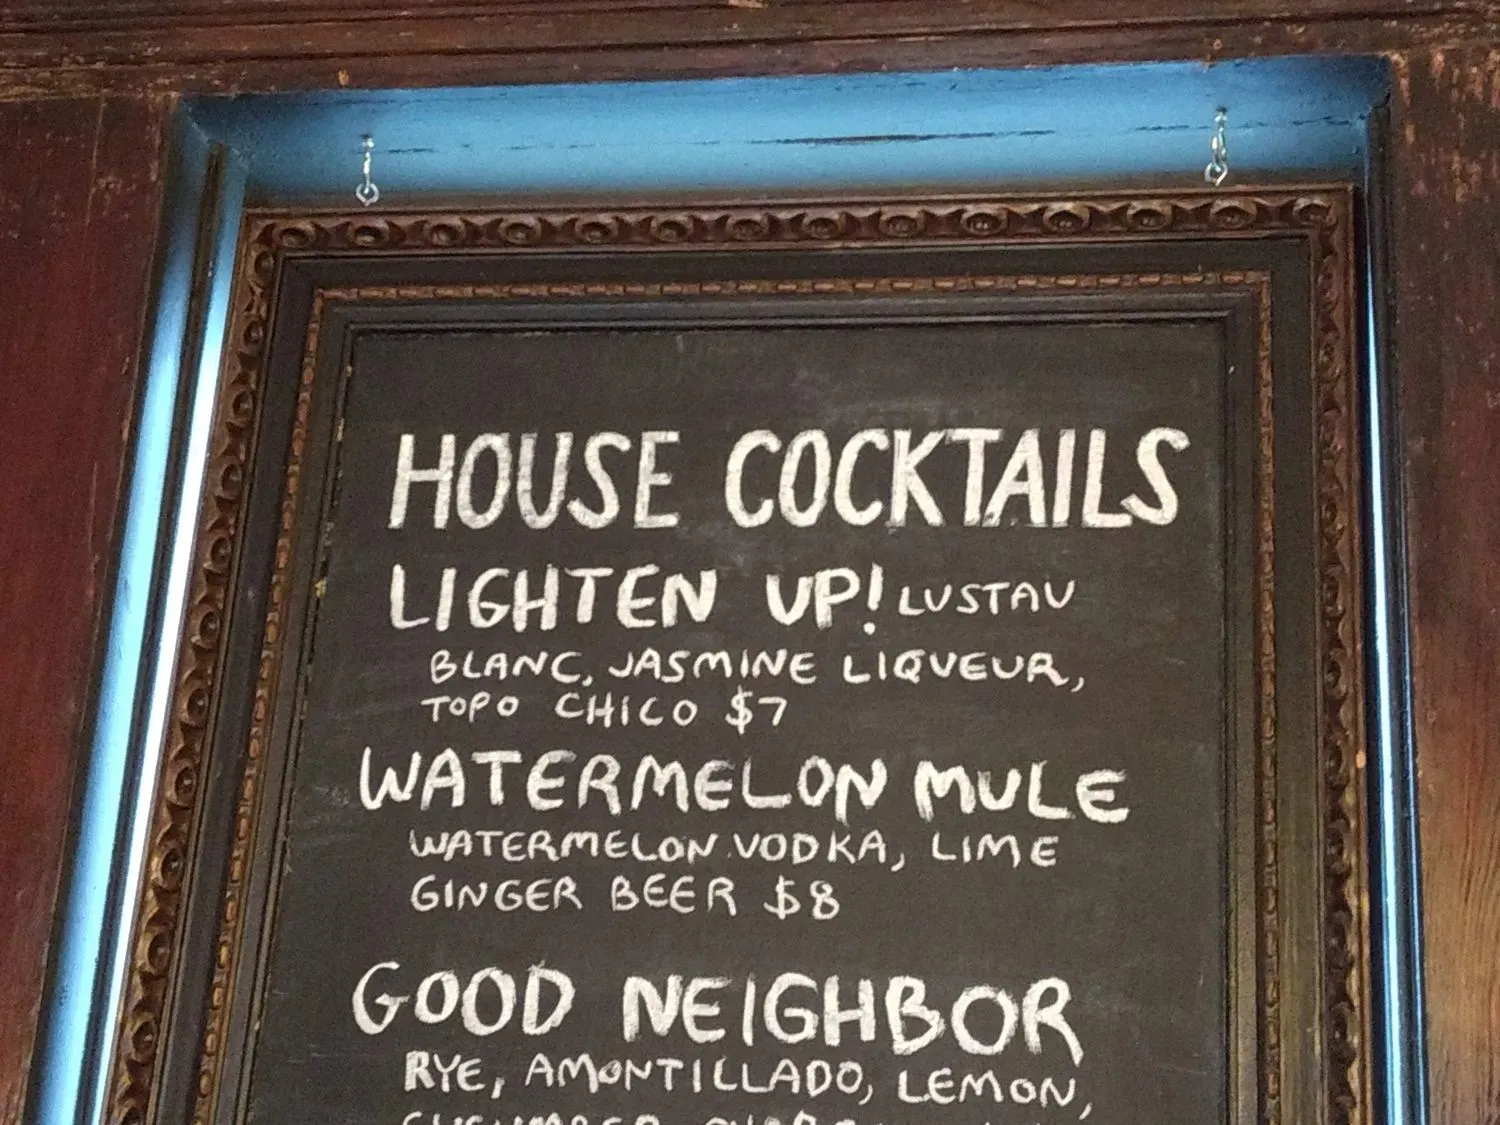 HOUSE COCKTAILS
LIGHTEN UP! LUSTAU
BLANC, JASMINE LIQUEUR,
TOPO CHICO $7
WATERMELON MULE
WATERMELON VODKA, LIME
GINGER BEER $8
GOOD NEIGHBOR
RYE, AMONTILLADO, LEMON,
CUCUMBER